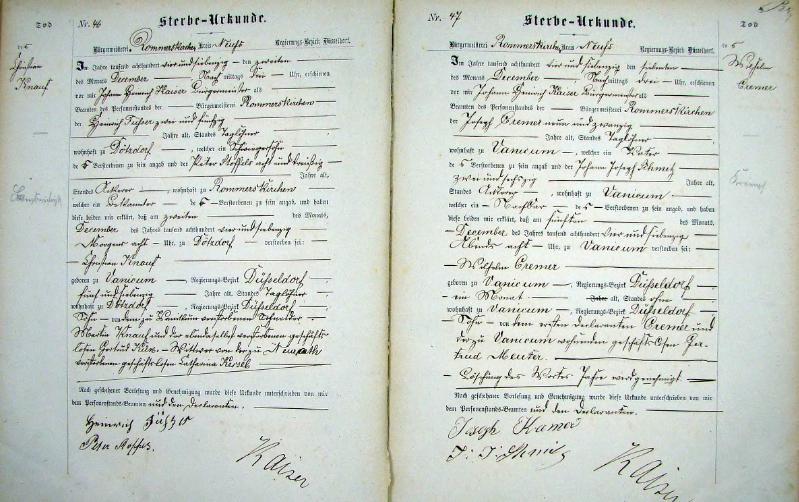 Tod
Nr. 46 Sterbe-Urkunde.
Bürgermeisterei Rommerskirchen Kreis Neuss Regierungs-Bezirk Düsseldorf.
Christian
Knauf
Im Jahre tausend achthundert vier und siebenzig den zweiten
des Monats December Nach mittags drei Uhr, erschienen
vor mir Johann Heinrich Kaiser Bürgermeister als
Beamten des Personenstandes der Bürgermeisterei Rommerskirchen
der Heinrich zwei und fünfzig
Jahre alt, Standes Taglöhner
wohnhaft zu welcher ein Schwiegersohn
de s Verstorbenen zu sein angab und der Peter acht und dreißig
Jahre alt,
Standes Ackerer, wohnhaft zu Rommerskirchen
welcher ein Bekannter de s Verstorbenen zu sein angab, und haben
diese beiden mir erklärt, daß am zweiten des Monats,
December des Jahres tausend achthundert vier und siebenzig
Morgens acht Uhr, zu verstorben sei:
Christian Knauf
geboren zu Vanicum, Regierungs-Bezirk Düsseldorf
fünf und siebenzig Jahre alt, Standes Taglöhner
wohnhaft zu Regierungs-Bezirk Düsseldorf
Sohn von dem zu verstorbenen Schneider
Martin Knauf und der daselbst verstorbenen geschäfts-
losen Gertrud Wittwer von der zu
verstorbenen geschäftslosen Catharina
Nach geschehener Vorlesung und Genehmigung wurde diese Urkunde unterschrieben von mir
dem Personenstands-Beamten und den Declaranten.
Heinrich
Peter
Kaiser
Tod
Nr. 47 Sterbe-Urkunde.
Bürgermeisterei Rommerskirchen Kreis Neuss Regierungs-Bezirk Düsseldorf.
Wilhelm
Cremer
Im Jahre tausend achthundert vier und siebenzig den siebenten
des Monats December Nachmittags drei Uhr, erschienen
vor mir Johann Heinrich Kaiser Bürgermeister als
Beamten des Personenstandes der Bürgermeisterei Rommerskirchen
der Joseph Cremer neun und zwanzig
Jahre alt, Standes Taglöhner
wohnhaft zu Vanicum, welcher ein Vater
de s Verstorbenen zu sein angab und der Johann Joseph Schmitz
zwei und sechszig Jahre alt,
Standes Ackerer, wohnhaft zu Vanicum
welcher ein Nachbar de s Verstorbenen zu sein angab, und haben
diese beiden mir erklärt, daß am fünften des Monats,
December des Jahres tausend achthundert vier und siebenzig
Abends acht Uhr zu Vanicum verstorben sei:
Wilhelm Cremer
geboren zu Vanicum, Regierungs-Bezirk Düsseldorf
ein Monat Jahre alt, Standes ohne
wohnhaft zu Vanicum, Regierungs-Bezirk Düsseldorf
Sohn von dem ersten Declaranten Cremer und
der zu Vanicum wohnenden geschäftslosen Ger-
trud Meuter.
Löschung des Wortes Jahre wird genehmigt
Nach geschehener Vorlesung und Genehmigung wurde diese Urkunde unterschrieben von mir
dem Personenstands-Beamten und den Declaranten.
Kaiser